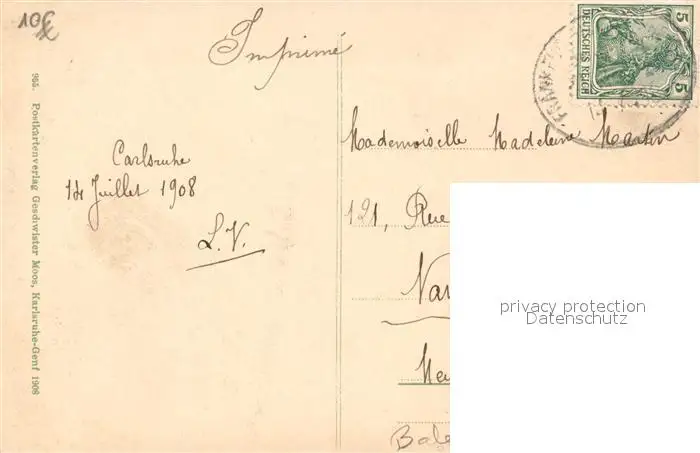 10€
Imprimé
DEUTSCHES REICH
5 5
Mademoiselle Madeleine Martin
121, Rue
Nan
Meu
Bale
Carlsruhe
14 Juillet 1908
L.V.
955. Postkartenverlag Geschwister Moos, Karlsruhe-Genf 1908
privacy protection
Datenschutz